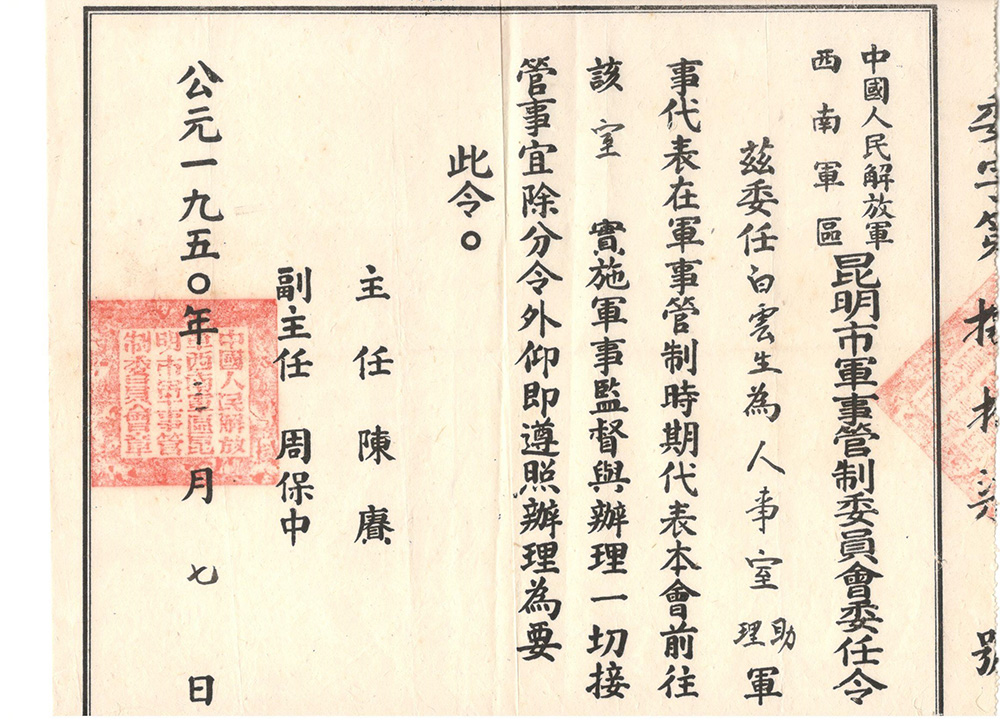 委字第拾柒號
中國人民解放軍
西南軍區
昆明市軍事管制委員會委任令
茲委任白雲生為人事室助理軍
事代表在軍事管制時期代表本會前往
該室實施軍事監督與辦理一切接
管事宜除分令外仰即遵照辦理為要
此令。
主任陳賡
副主任周保中
公元一九五〇年三月七日
中國人民解放
軍西南軍區昆
明市軍事管
制委員會章